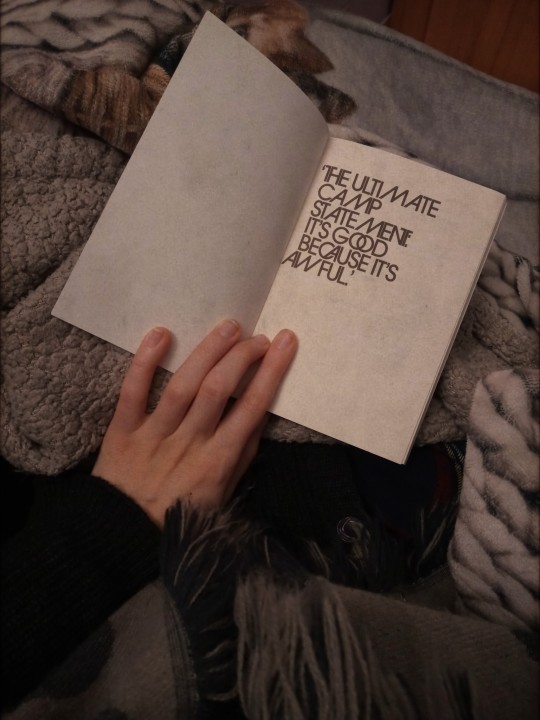 'THE ULTIMATE
CAMP
STATEMENT:
IT'S GOOD
BECAUSE IT'S
AWFUL.'